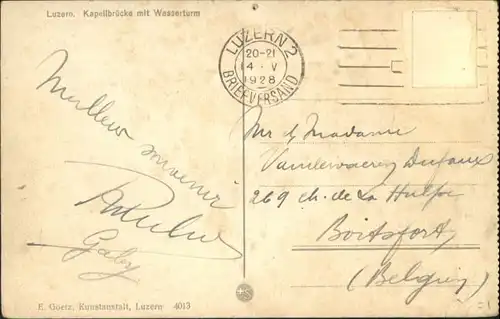 Luzern. Kapellbrücke mit Wasserturm
LUZERN 2
20-21
4 · V
1928
BRIEFVERSAND
Meilleur souvenir
Gaby
Mr & Madame
269 ch. de La Hulpe
Boitsfort
(Belgien)
E. Goetz, Kunstanstalt, Luzern 4013